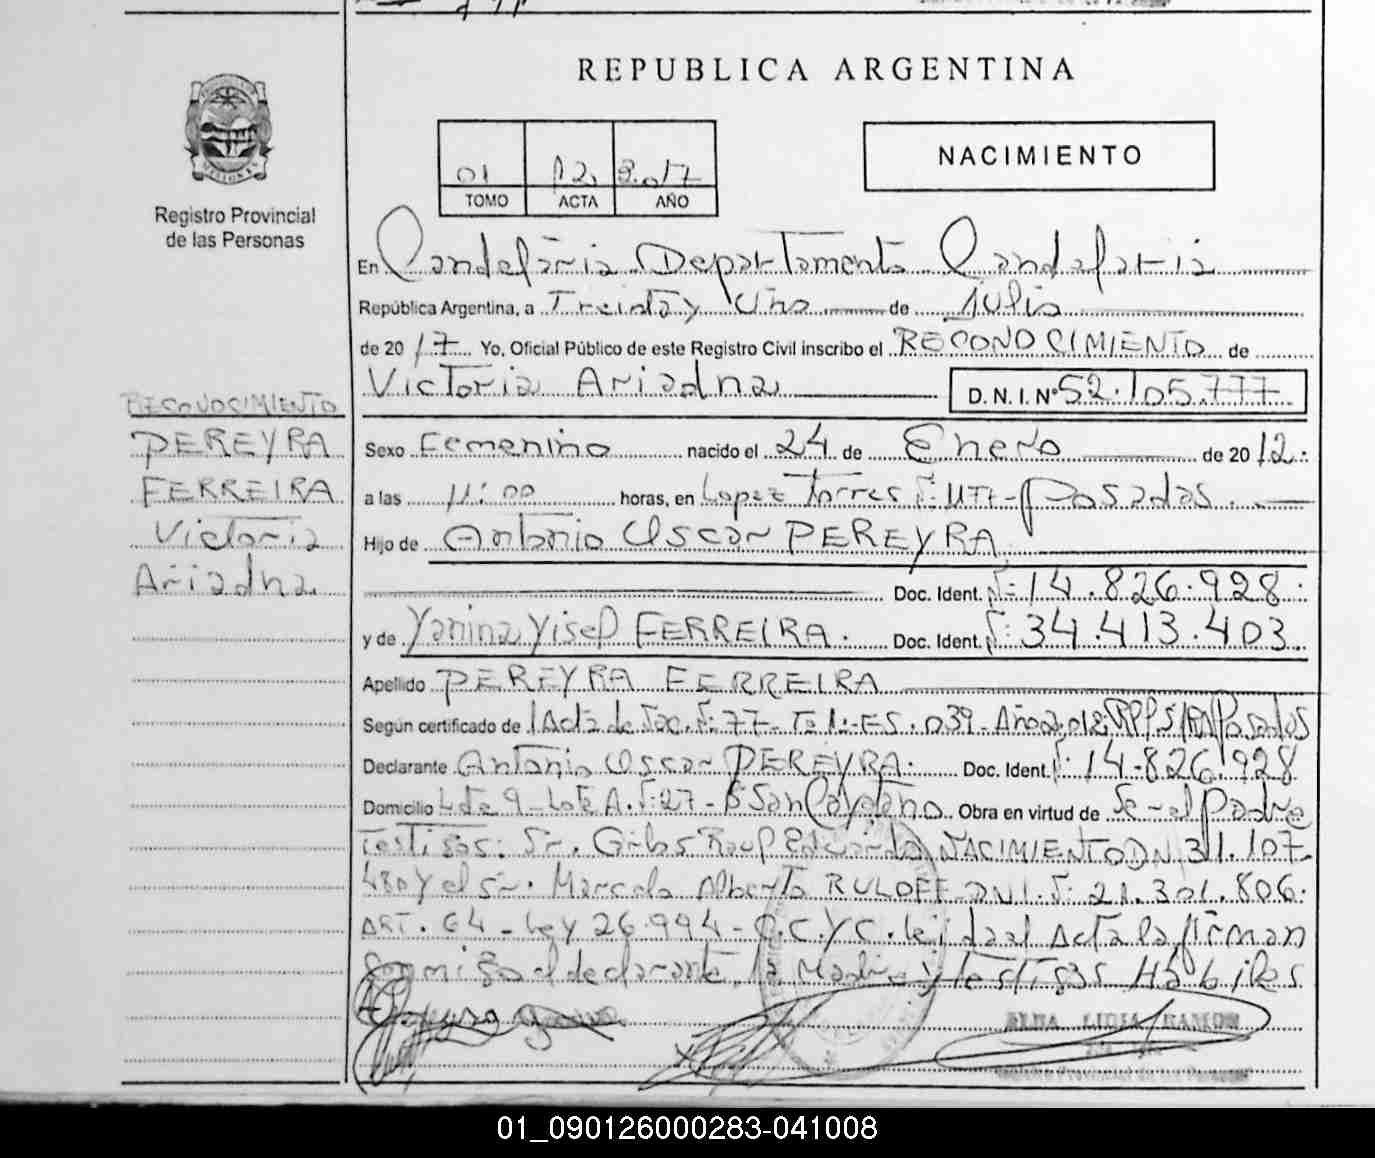 REPUBLICA ARGENTINA
01 12 2.017
TOMO ACTA AÑO
NACIMIENTO
Registro Provincial
de las Personas
En Candelaria Departamento Candelaria
República Argentina, a Treinta y Uno de Julio
de 2017. Yo, Oficial Público de este Registro Civil inscribo el RECONOCIMIENTO de
Victoria Ariadna D. N. I. N° 52.105.777
RECONOCIMIENTO
PEREYRA
FERREIRA
Victoria
Ariadna
Sexo Femenino nacido el 24 de Enero de 2012.
a las 11:00 horas, en Lopez Torres Posadas.
Hijo de Antonio Oscar PEREYRA
Doc. Ident. N: 14.826.928.
y de Yanina Yisel FERREIRA. Doc. Ident. N: 34.413.403
Apellido PEREYRA FERREIRA
Según certificado de Acta de Nac. N: 77 - To 1: - ES. 039 - Año 2.012: Posadas
Declarante Antonio Oscar PEREYRA. Doc. Ident. N: 14.826.928
Domicilio Lote A. N: 27 - B° San Cayetano Obra en virtud de Ser el Padre
Testigos: Sr. Carlos Raul Eduardo NACIMIENTO DN 31.107.
480 y el Sr. Marcelo Alberto RULOFF DNI. N: 21.301.806.
ART. 64 - Ley 26.994 - C.C.y C. leida el Acta la firman
conmigo el declarante, la Madre y testigos Habiles
ELBA LIDIA RAMON
Registro Provincial de las Personas
01_090126000283-041008